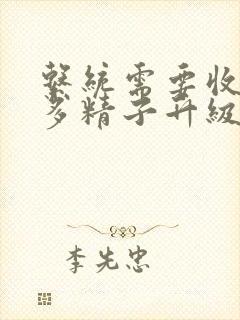 系統需要收
多精子升級
李先忠